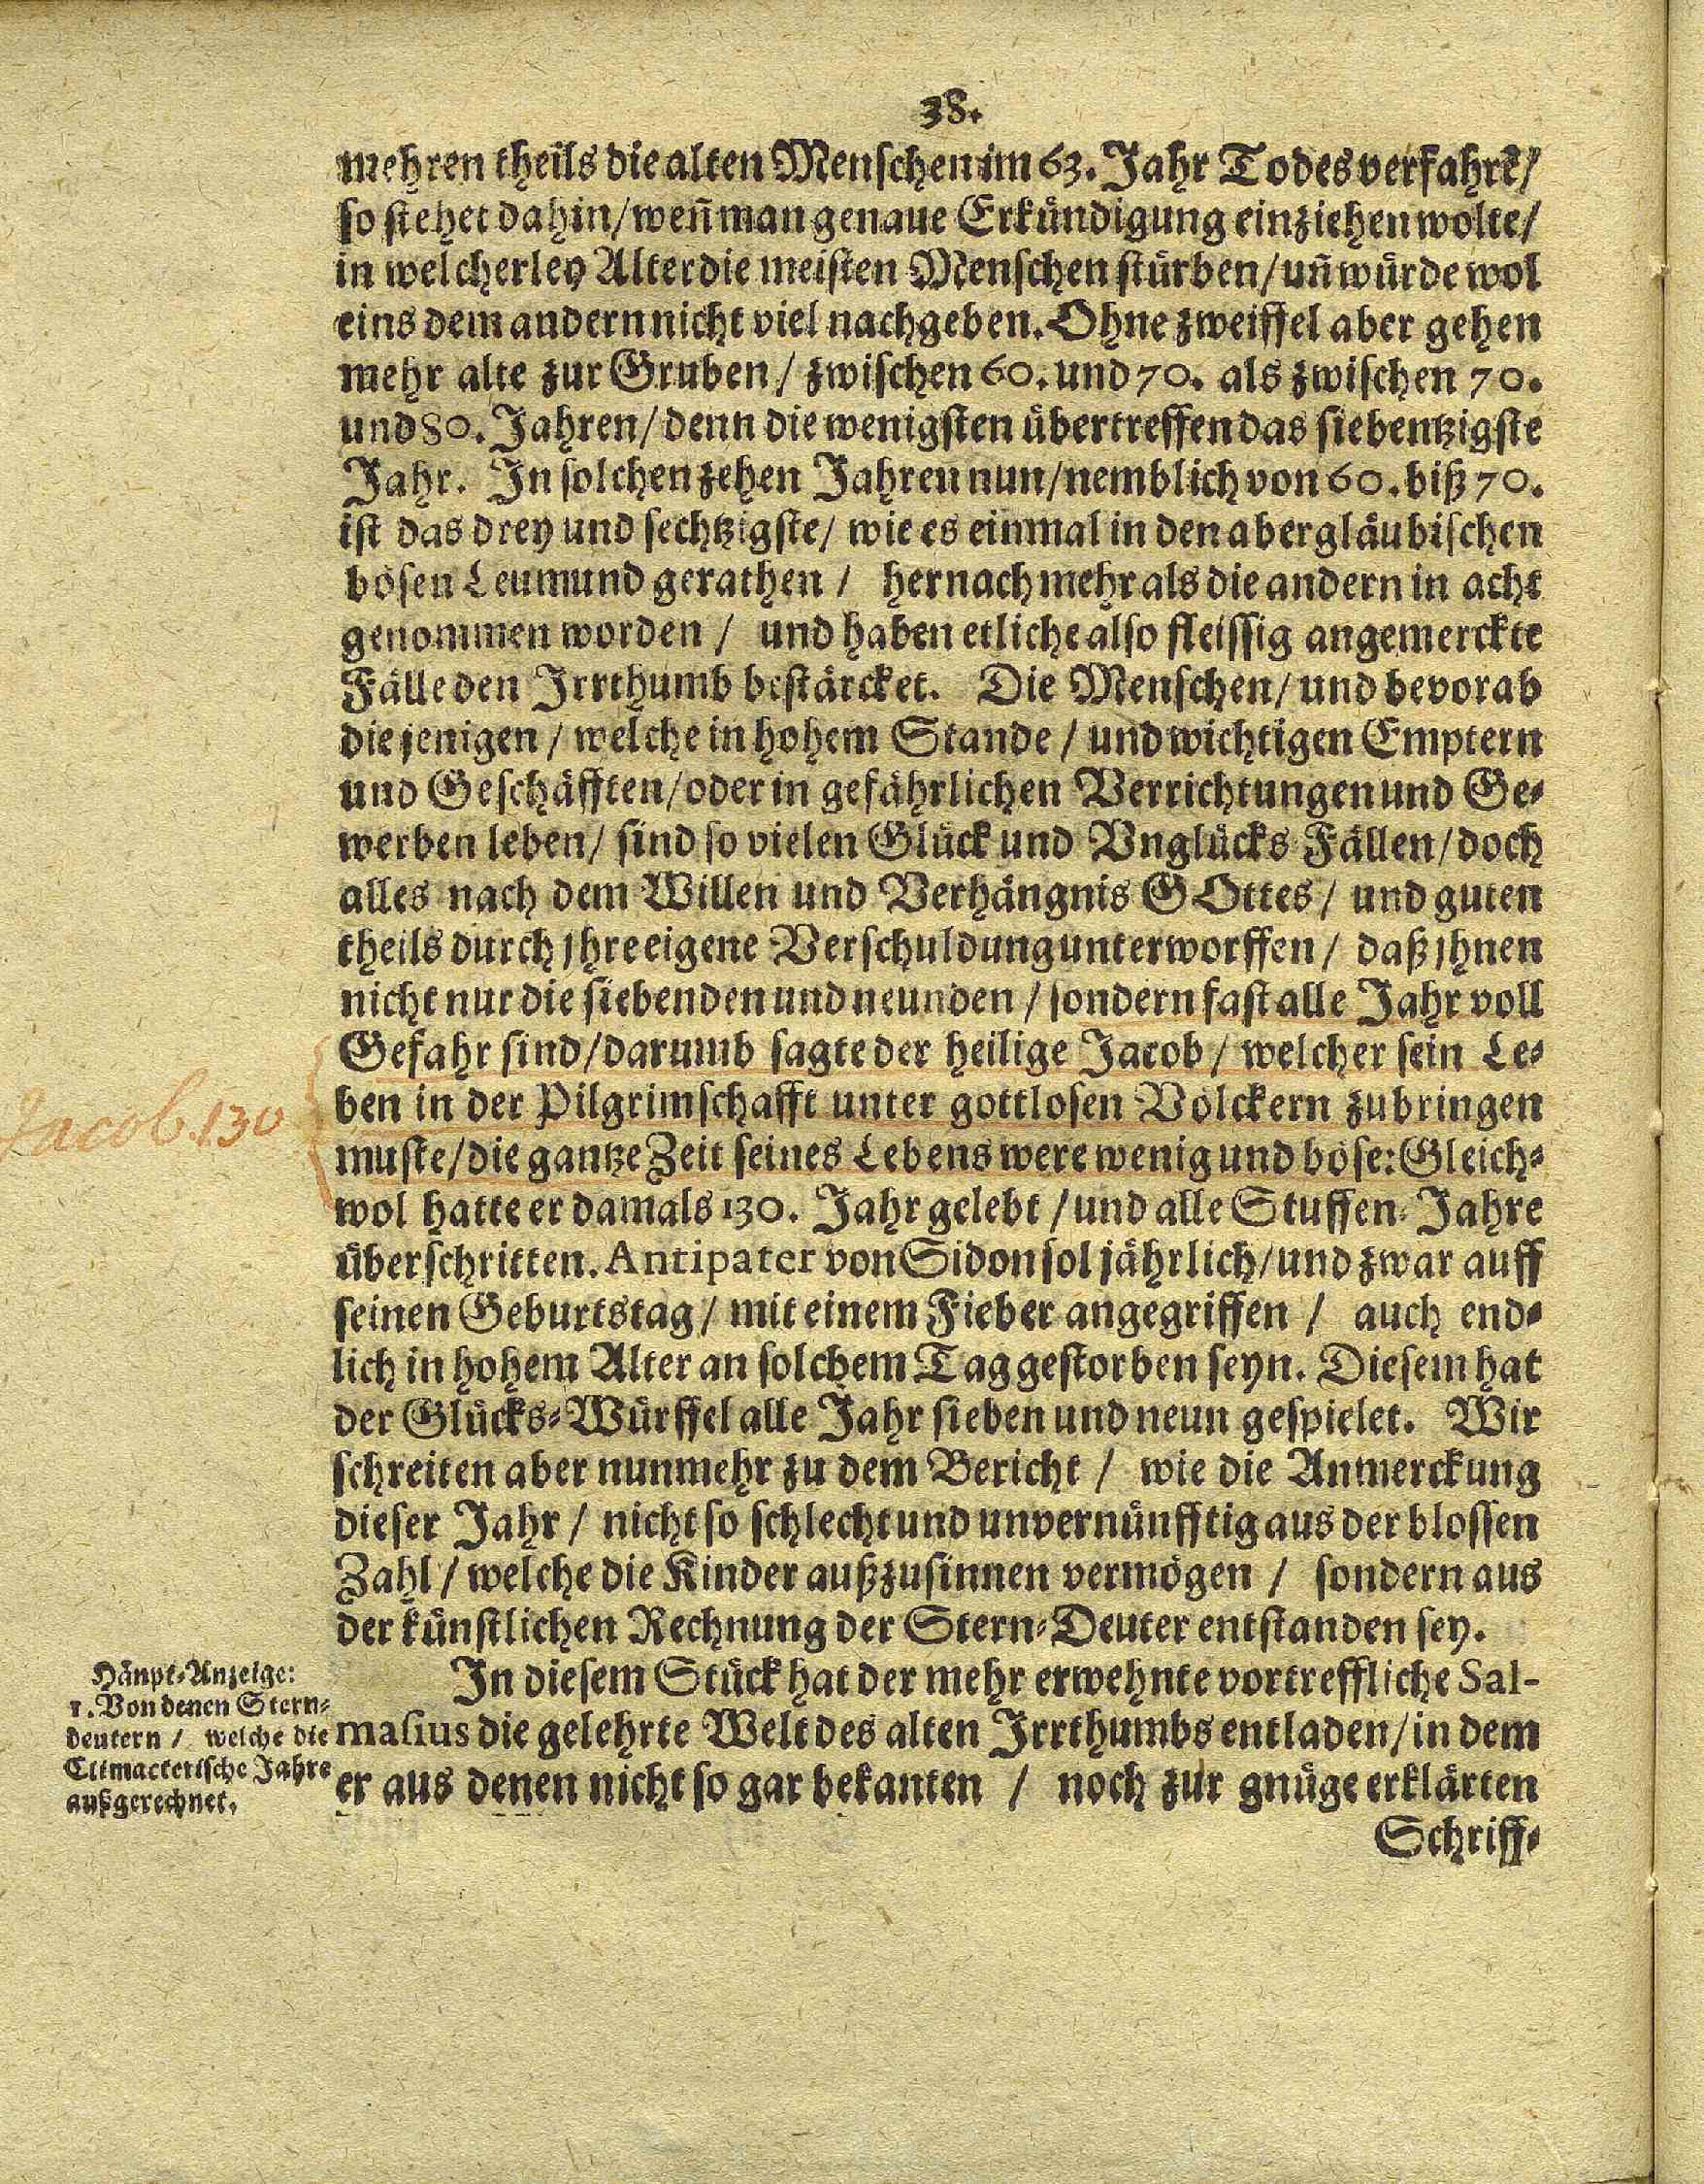 38.
mehren theils die alten Menschen im 63. Jahr Todes verfahrẽ/
so stehet dahin/ weñ man genaue Erkündigung einziehen wolte/
in welcherley Alter die meisten Menschen stürben/ uñ würde wol
eins dem andern nicht viel nachgeben. Ohne zweiffel aber gehen
mehr alte zur Gruben/ zwischen 60. und 70. als zwischen 70.
und 80. Jahren/ denn die wenigsten übertreffen das siebentzigste
Jahr. In solchen zehen Jahren nun/ nemblich von 60. biß 70.
ist das drey und sechtzigste/ wie es einmal in den abergläubischen
bösen Leumund gerathen / hernach mehr als die andern in acht
genommen worden / und haben etliche also fleissig angemerckte
Fälle den Irrthumb bestärcket. Die Menschen/ und bevorab
die jenigen / welche in hohem Stande / und wichtigen Emptern
und Geschäfften/ oder in gefährlichen Verrichtungen und Ge-
werben leben/ sind so vielen Glück und Vnglücks Fällen/ doch
alles nach dem Willen und Verhängnis GOttes / und guten
theils durch jhre eigene Verschuldung unterworffen / daß jhnen
nicht nur die siebenden und neunden / sondern fast alle Jahr voll
Gefahr sind/ darumb sagte der heilige Jacob / welcher sein Le-
ben in der Pilgrimschafft unter gottlosen Völckern zubringen
Jacob. 130
muste/ die gantze Zeit seines Lebens were wenig und böse: Gleich-
wol hatte er damals 130. Jahr gelebt / und alle Stuffen-Jahre
überschritten. Antipater von Sidon sol jährlich/ und zwar auff
seinen Geburtstag / mit einem Fieber angegriffen / auch end-
lich in hohem Alter an solchem Tag gestorben seyn. Diesem hat
der Glücks-Würffel alle Jahr sieben und neun gespielet. Wir
schreiten aber nunmehr zu dem Bericht / wie die Anmerckung
dieser Jahr / nicht so schlecht und unvernünfftig aus der blossen
Zahl / welche die Kinder außzusinnen vermögen / sondern aus
der künstlichen Rechnung der Stern-Deuter entstanden sey.
Häupt-Anzeige:
1. Von denen Stern-
deutern / welche die
Climacterische Jahre
außgerechnet.
In diesem Stück hat der mehr erwehnte vortreffliche Sal-
masius die gelehrte Welt des alten Irrthumbs entladen/ in dem
er aus denen nicht so gar bekanten / noch zur gnüge erklärten
Schriff-